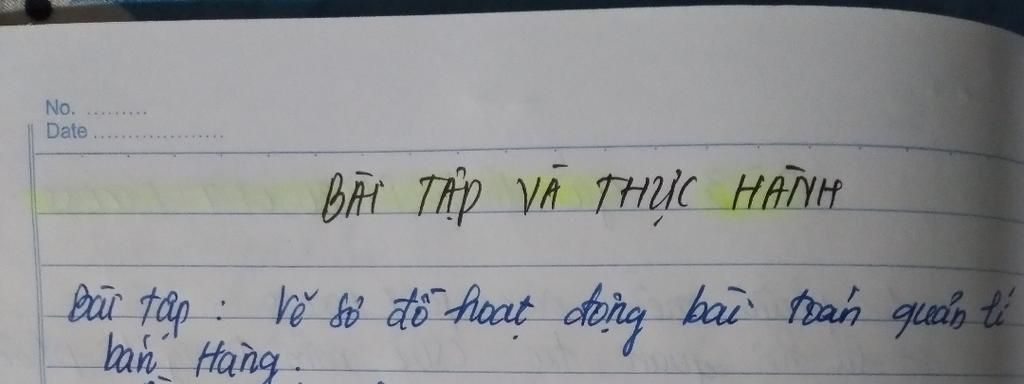 No. .........
Date ...................
BÀI TẬP VÀ THỰC HÀNH
Bài tập : Vẽ sơ đồ hoạt động bài toán quản lí
bán Hàng.